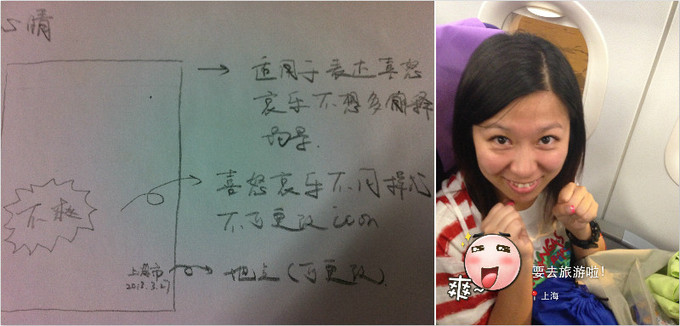 心情
适用于表达喜怒
哀乐不想多解释
场景.
喜怒哀乐不同
不可更改icon
不爽
上海市
地点(可更改)
要去旅游啦!
爽~
上海